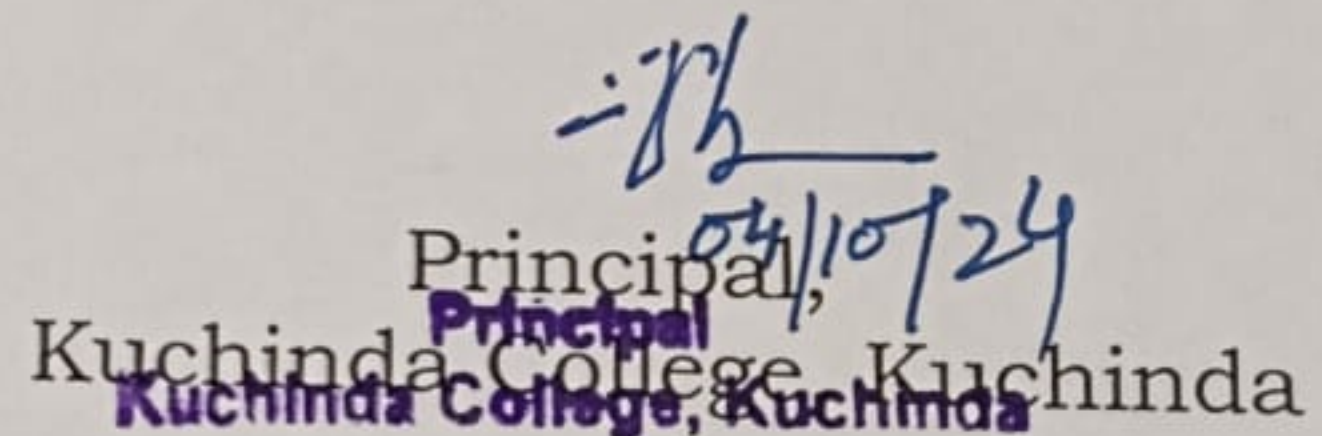 04/10/24
Principal,
Principal
Kuchinda College, Kuchinda
Kuchinda College, Kuchinda